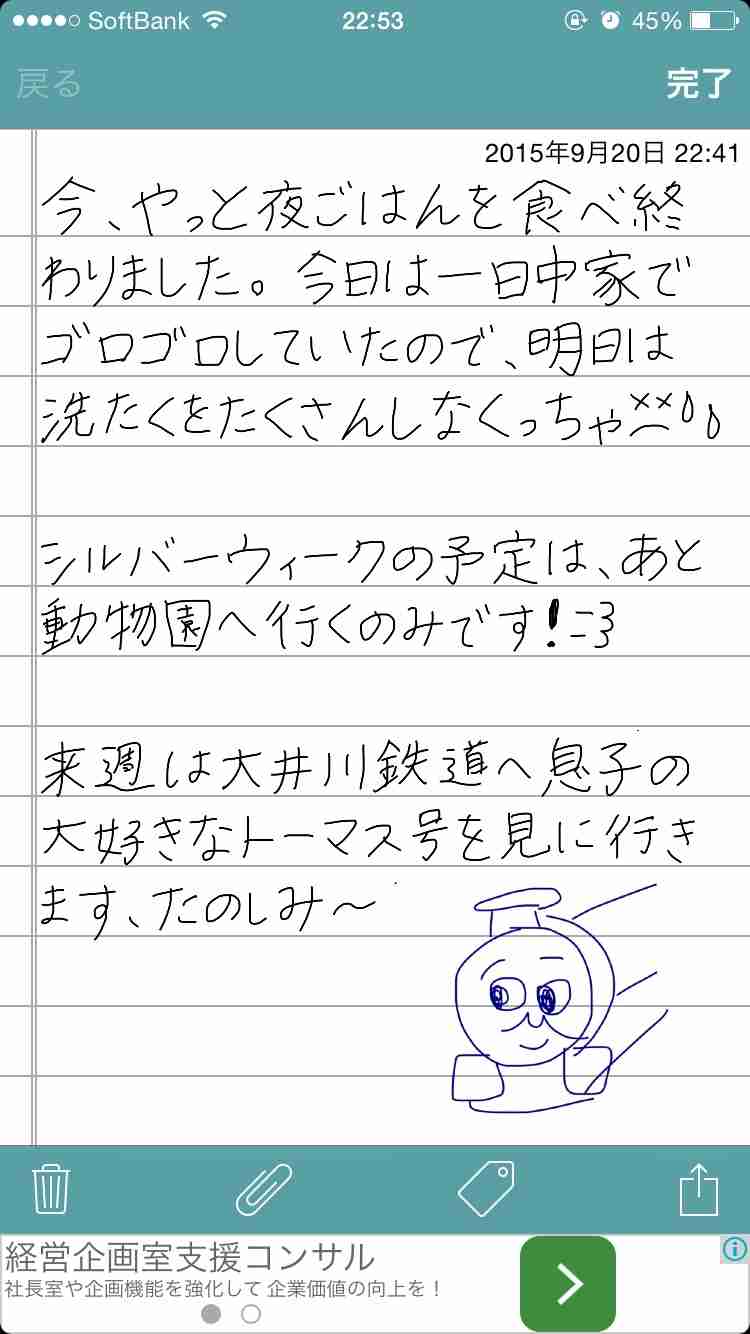 SoftBank 22:53 45%
戻る 完了
2015年9月20日 22:41
今、やっと夜ごはんを食べ終
わりました。今日は一日中家で
ゴロゴロしていたので、明日は
洗たくをたくさんしなくっちゃ
シルバーウィークの予定は、あと
動物園へ行くのみです!
来週は大井川鉄道へ息子の
大好きなトーマス号を見に行き
ます、たのしみ〜
経営企画室支援コンサル
社長室や企画機能を強化して 企業価値の向上を！